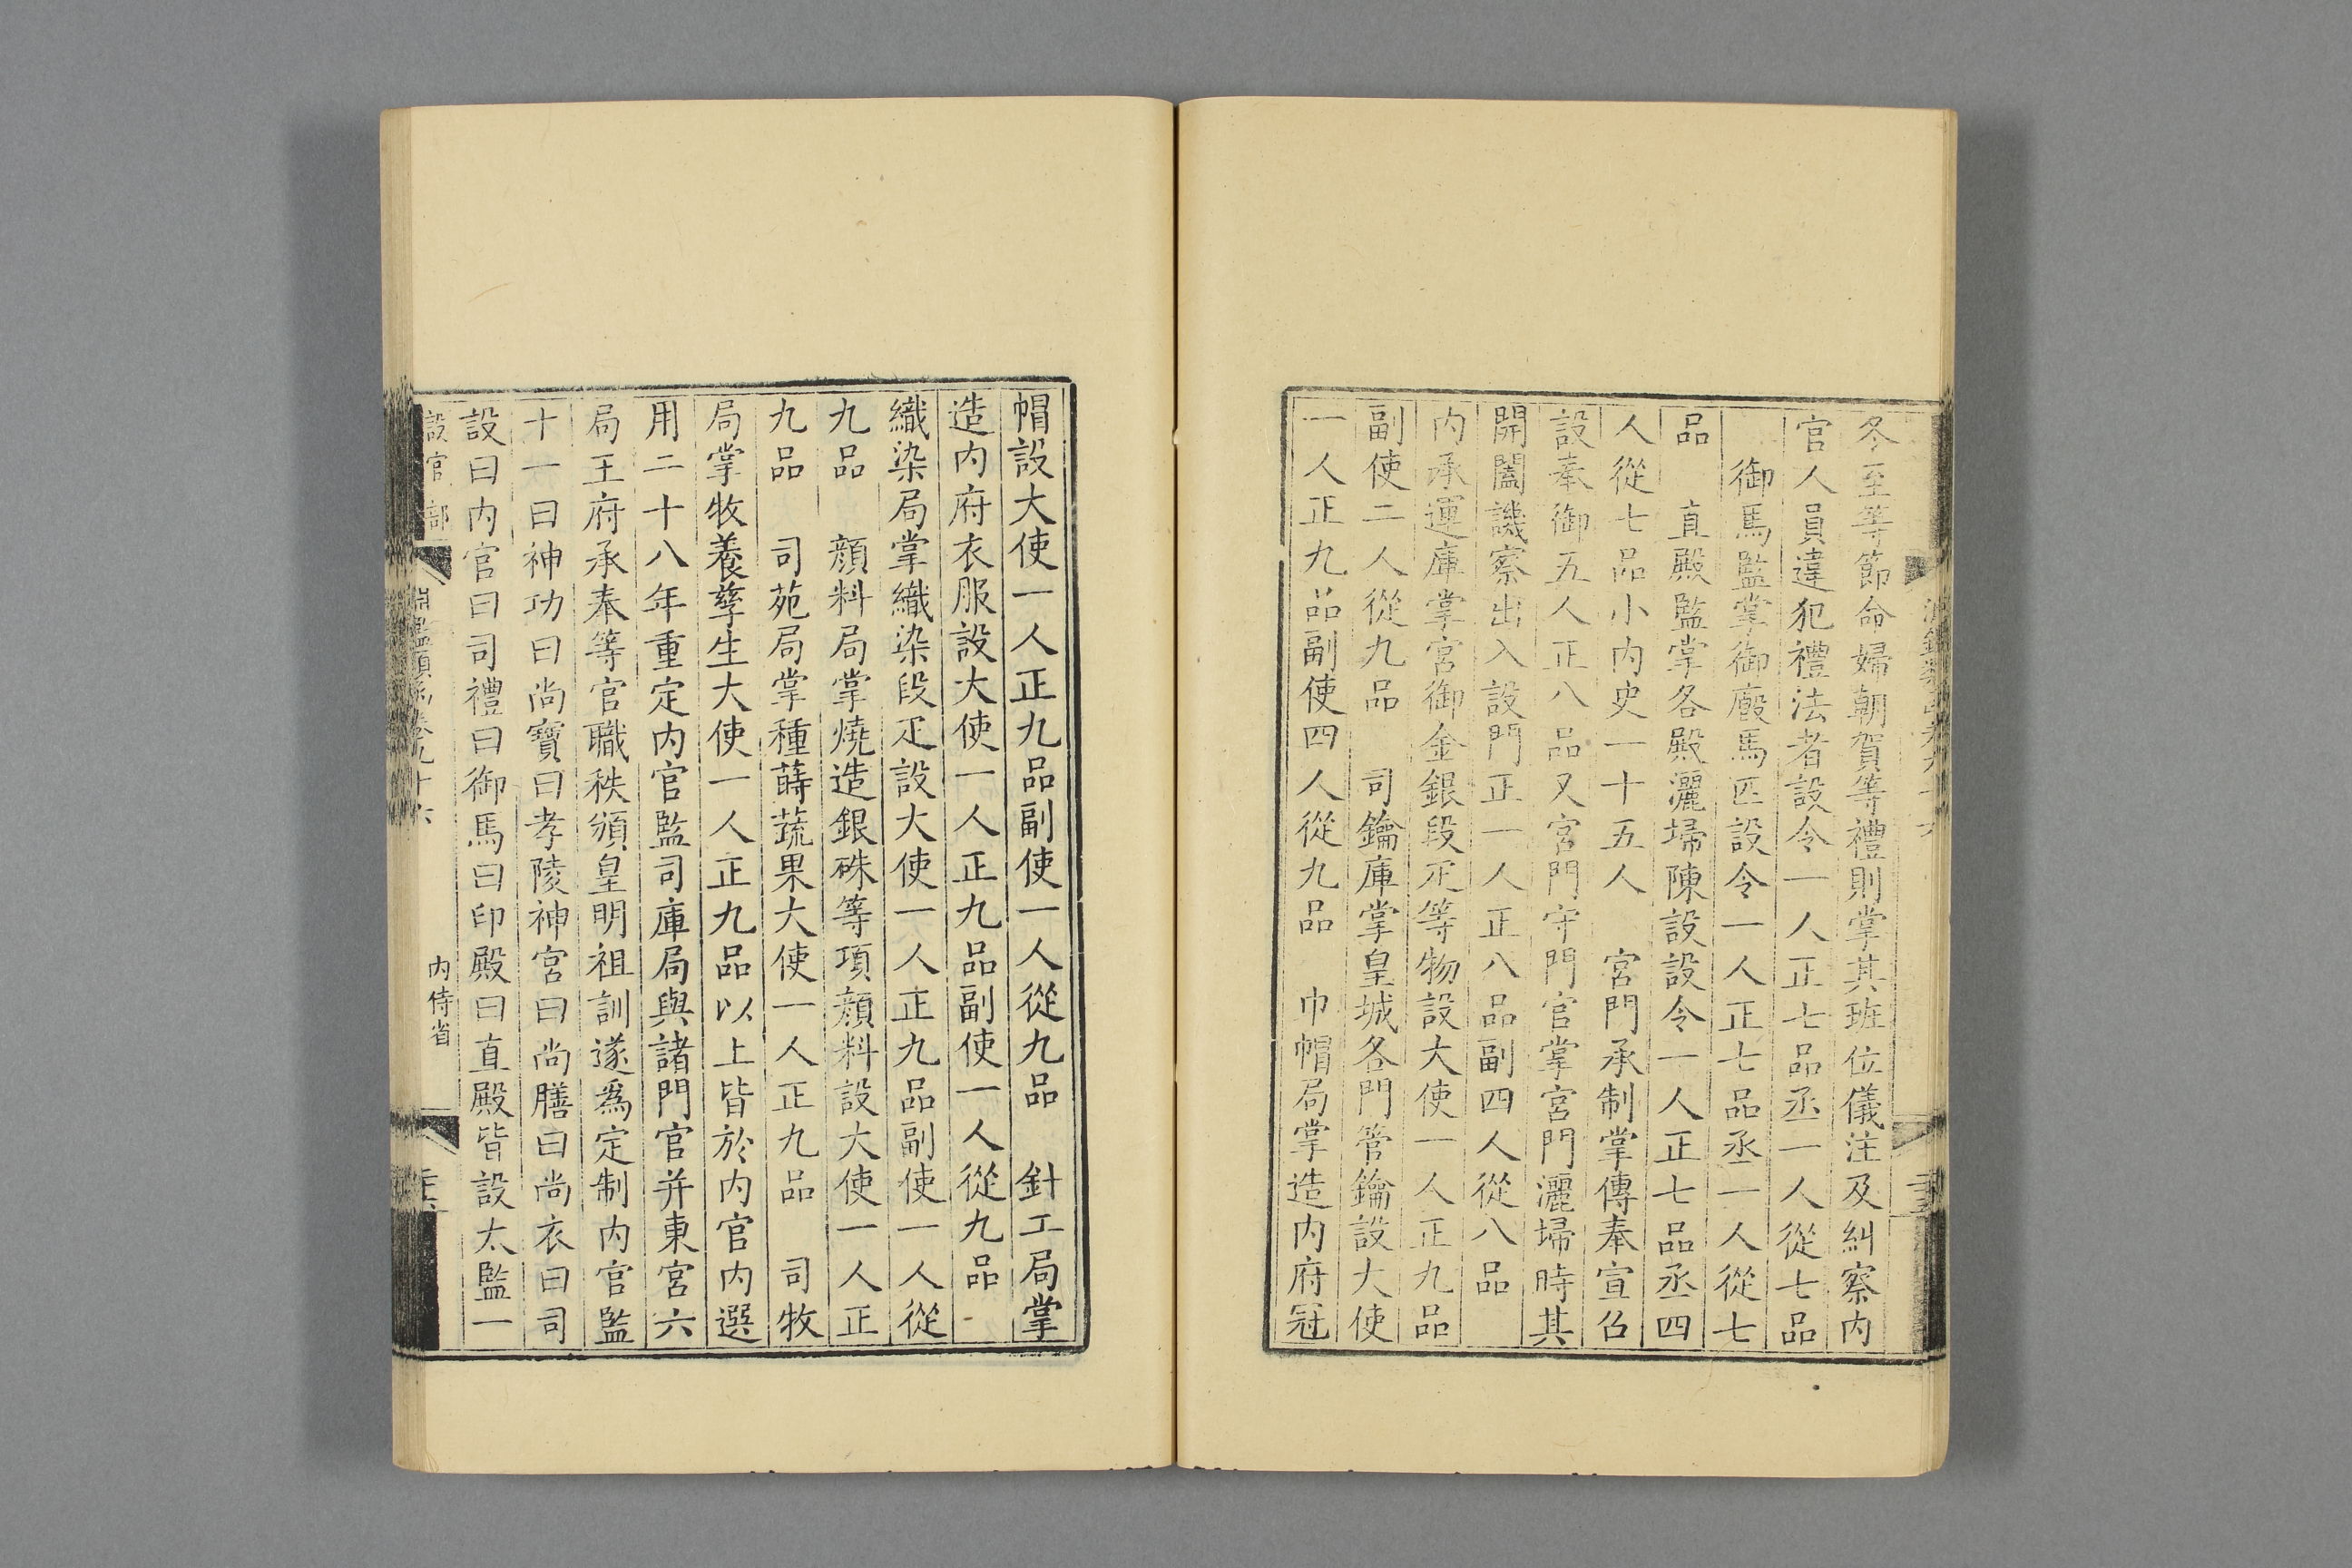 冬至等節命婦朝賀等禮則掌其班位儀注及糾察内
官人員違犯禮法者設令一人正七品丞一人從七品
御馬監掌御廄馬匹設令一人正七品丞一人從七
品　直殿監掌各殿灑埽陳設設令一人正七品丞四
人從七品小内史一十五人　宮門承制掌傳奉宣召
設奉御五人正八品又宮門守門官掌宮門灑埽時其
開闔譏察出入設門正一人正八品副四人從八品
内承運庫掌宮御金銀段疋等物設大使一人正九品
副使二人從九品　司鑰庫掌皇城各門管鑰設大使
一人正九品副使四人從九品　巾帽局掌造内府冠
帽設大使一人正九品副使一人從九品　針工局掌
造内府衣服設大使一人正九品副使一人從九品
織染局掌織染段疋設大使一人正九品副使一人從
九品　顔料局掌燒造銀硃等項顔料設大使一人正
九品　司苑局掌種蒔蔬果大使一人正九品　司牧
局掌牧養孳生大使一人正九品以上皆於内官内選
用二十八年重定内官監司庫局與諸門官并東宮六
局王府承奉等官職秩頒皇明祖訓遂爲定制内官監
十一曰神功曰尚寶曰孝陵神宮曰尚膳曰尚衣曰司
設曰内官曰司禮曰御馬曰印殿曰直殿皆設太監一
設官部
淵鑑類函卷九十六
内侍省